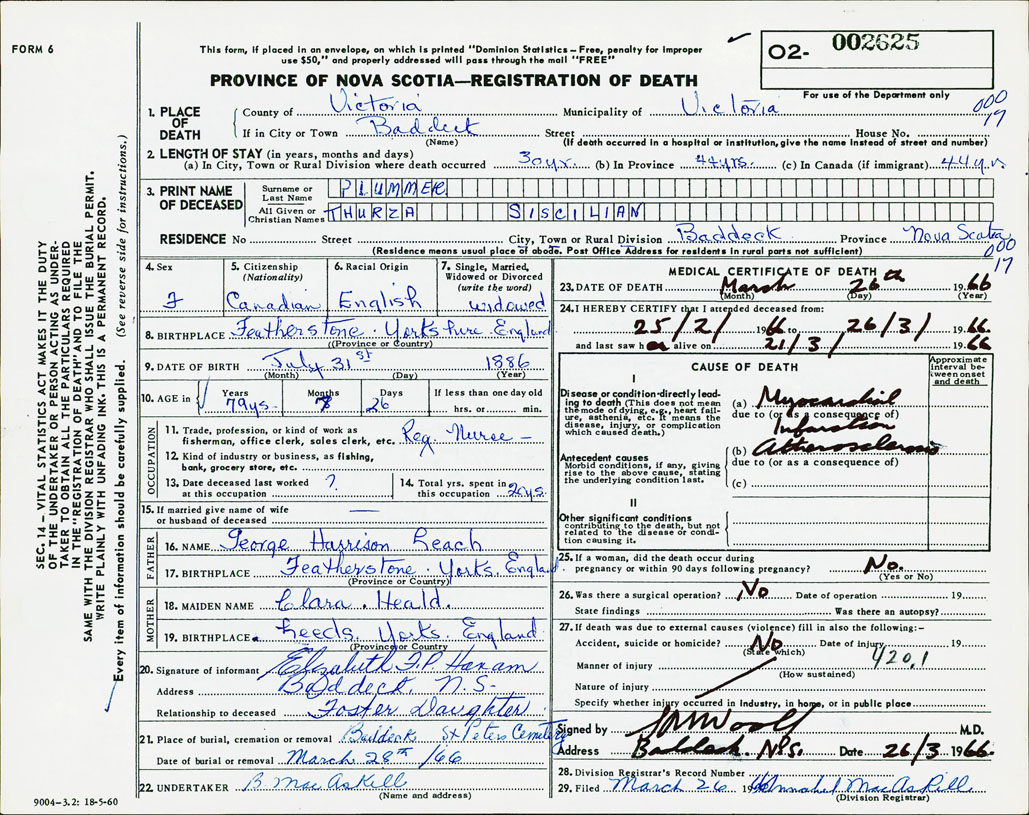 FORM 6
This form, if placed in an envelope, on which is printed "Dominion Statistics – Free, penalty for improper
use $50," and properly addressed will pass through the mail "FREE"
O2- 002625
For use of the Department only
PROVINCE OF NOVA SCOTIA—REGISTRATION OF DEATH
000
17
1. PLACE OF DEATH
County of Victoria Municipality of Victoria
If in City or Town Baddeck Street House No.
(Name) (If death occurred in a hospital or institution, give the name instead of street and number)
2. LENGTH OF STAY (in years, months and days)
(a) In City, Town or Rural Division where death occurred 30 yr. (b) In Province 44 yrs. (c) In Canada (if immigrant) 44 yrs.
3. PRINT NAME OF DECEASED
Surname or Last Name PLUMMER
All Given or Christian Names THURZA SISCILIAN
RESIDENCE No Street City, Town or Rural Division Baddeck Province Nova Scotia
(Residence means usual place of abode. Post Office Address for residents in rural parts not sufficient)
000
17
4. Sex F
5. Citizenship (Nationality) Canadian
6. Racial Origin English
7. Single, Married, Widowed or Divorced (write the word) widowed
8. BIRTHPLACE Featherstone. Yorkshire. England
(Province or Country)
9. DATE OF BIRTH July 31st 1886
(Month) (Day) (Year)
10. AGE in Years 79 ys. Months 7 Days 26 If less than one day old hrs. or min.
OCCUPATION
11. Trade, profession or kind of work as
fisherman, office clerk, sales clerk, etc. Reg. Nurse –
12. Kind of industry or business, as fishing,
bank, grocery store, etc.
13. Date deceased last worked
at this occupation ?
14. Total yrs. spent in
this occupation 20 ys.
15. If married give name of wife
or husband of deceased —
FATHER
16. NAME George Harrison Reach
17. BIRTHPLACE Featherstone. Yorks. England
(Province or Country)
MOTHER
18. MAIDEN NAME Clara. Heald.
19. BIRTHPLACE. Leeds. Yorks. England
(Province or Country)
20. Signature of informant Elizabeth F.P. Hanam
Address Baddeck, N.S.
Relationship to deceased Foster Daughter
21. Place of burial, cremation or removal Baddeck St Peters Cemetery
Date of burial or removal March 28th /66
22. UNDERTAKER B MacAskill
(Name and address)
MEDICAL CERTIFICATE OF DEATH
23. DATE OF DEATH March 26th 1966
(Month) (Day) (Year)
24. I HEREBY CERTIFY that I attended deceased from:
25/2/ 1966 to 26/3/ 1966.
and last saw her alive on 21/3/ 1966
CAUSE OF DEATH
Approximate interval between onset and death
I
Disease or condition directly leading to death (This does not mean
the mode of dying, e.g., heart failure, asthenia, etc. It means the
disease, injury, or complication
which caused death.)
(a) Myocardial
due to (or as a consequence of)
Infarction
(b) Atherosclerosis
due to (or as a consequence of)
(c)
Antecedent causes
Morbid conditions, if any, giving
rise to the above cause, stating
the underlying condition last.
II
Other significant conditions
contributing to the death, but not
related to the disease or condition causing it.
25. If a woman, did the death occur during
pregnancy or within 90 days following pregnancy? No.
(Yes or No)
26. Was there a surgical operation? No Date of operation 19
State findings Was there an autopsy?
27. If death was due to external causes (violence) fill in also the following:–
Accident, suicide or homicide? No Date of injury 19
(State which)
420.1
Manner of injury
(How sustained)
Nature of injury
Specify whether injury occurred in industry, in home, or in public place
Signed by M.D.
Address Baddeck. N.S. Date 26/3 1966.
28. Division Registrar's Record Number
29. Filed March 26 1966 Annabel MacAskill
(Division Registrar)
SEC. 14 – VITAL STATISTICS ACT MAKES IT THE DUTY
OF THE UNDERTAKER OR PERSON ACTING AS UNDERTAKER TO OBTAIN ALL THE PARTICULARS REQUIRED
IN THE "REGISTRATION OF DEATH" AND TO FILE THE
SAME WITH THE DIVISION REGISTRAR WHO SHALL ISSUE THE BURIAL PERMIT.
WRITE PLAINLY WITH UNFADING INK. THIS IS A PERMANENT RECORD.
Every item of information should be carefully supplied. (See reverse side for instructions.)
9004–3.2: 18-5-60